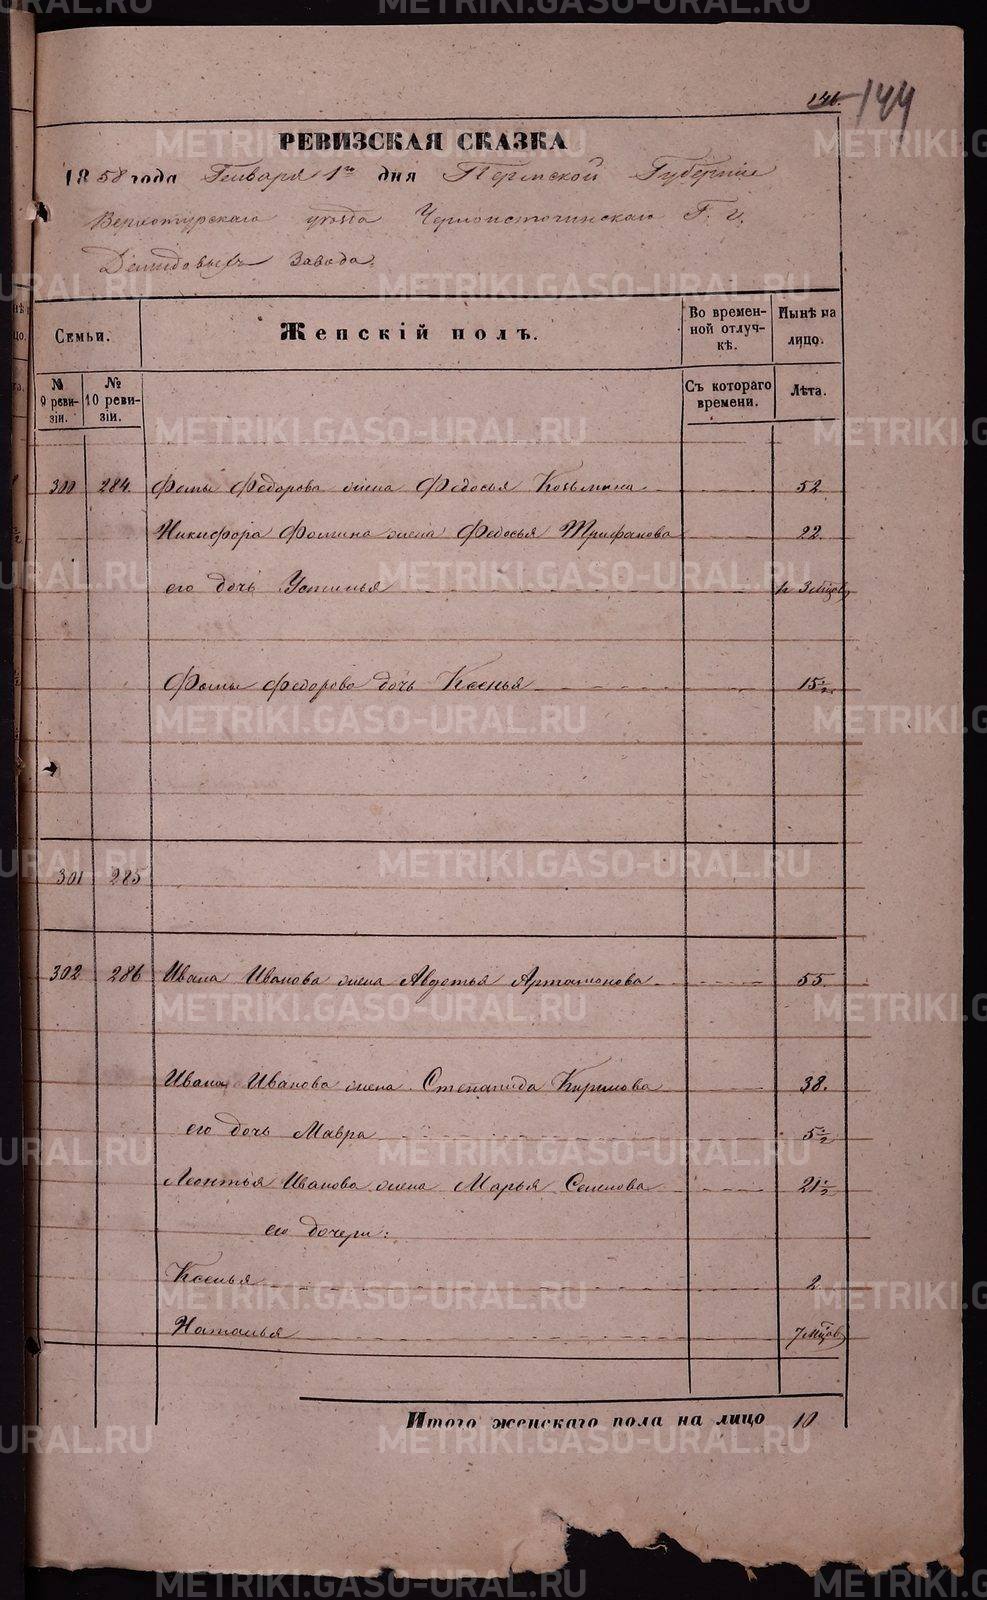 146. 144
РЕВИЗСКАЯ СКАЗКА
1858 года Генваря 1го дня Пермской Губерніи
Верхотурскаго уезда Черноисточинскаго Г. г.
Демидовыхъ завода.
Семьи.
Женскій полъ.
Во времен-
ной отлуч-
кѣ.
Нынѣ на
лицо.
№
9 реви-
зіи.
№
10 реви-
зіи.
Съ котораго
времени.
Лѣта.
300 284. Фомы Федорова жена Федосья Козьмина 52
Никифора Фомина жена Федосья Трифанова 22
его дочь Устинья 3 мѣсцов
Фомы Федорова дочь Ксенья 15 1/2
301 285
302 286 Ивана Иванова жена Авдотья Артамонова 55.
Ивана Иванова жена Степанида Кирилова 38.
его дочь Мавра 5 1/2
Леонтья Иванова жена Марья Семенова 21 1/2
его дочери:
Ксенья 2
Наталья 7 мѣсцов
Итого женскаго пола на лицо 10
METRIKI.GASO-URAL.RU